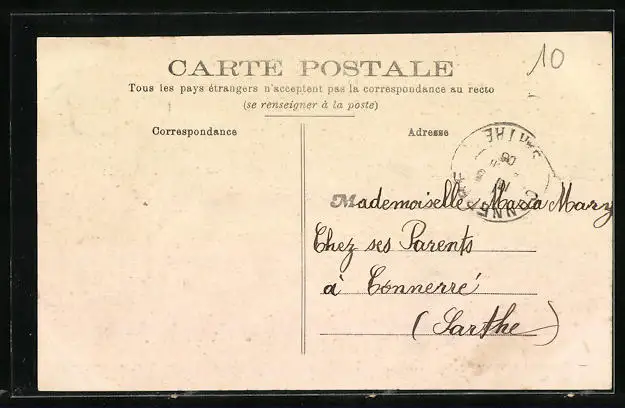 10
CARTE POSTALE
Tous les pays étrangers n'acceptent pas la correspondance au recto
(se renseigner à la poste)
Correspondance
Adresse
SARTHE
08
CONNERRÉ
Mademoiselle Maria Mary
Chez ses Parents
à Connerré
(Sarthe)